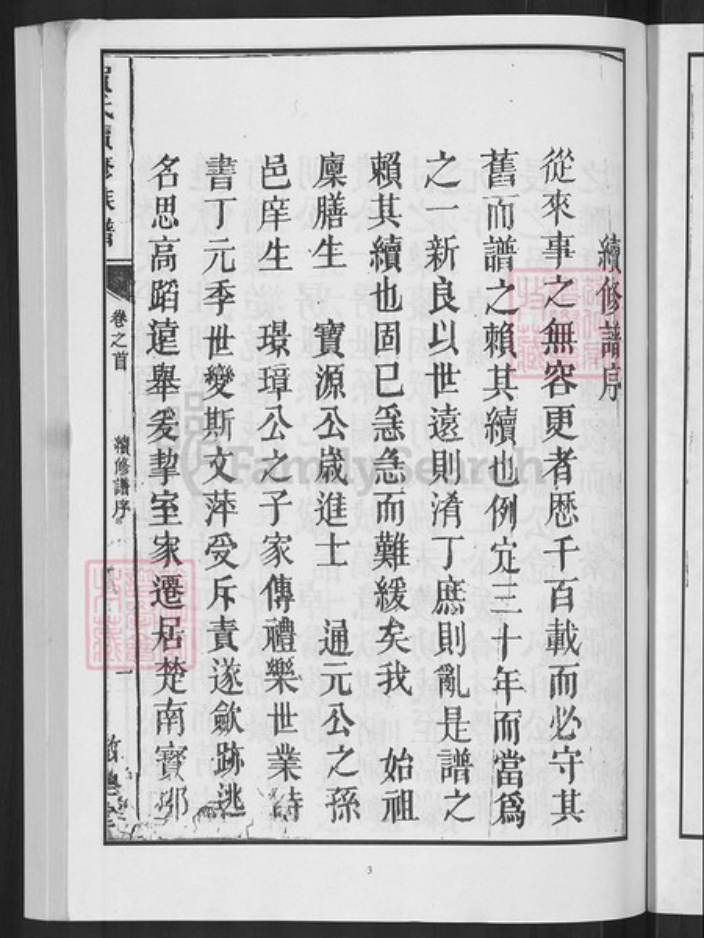 續修譜序
從來事之無容更者歷千百載而必守其
舊而譜之賴其續也例定三十年而當爲
之一新良以世遠則淆丁庶則亂是譜之
賴其續也固已急急而難緩矣我 始祖
廩膳生 寶源公歲進士 通元公之孫
邑庠生 璟璋公之子家傳禮樂世業詩
書丁元季世變斯文萍受斥責遂歛跡逃
名思高蹈遠舉爰挈室家遷居楚南寶
氏續修族譜
卷之首
續修譜序
一
FamilySearch
3